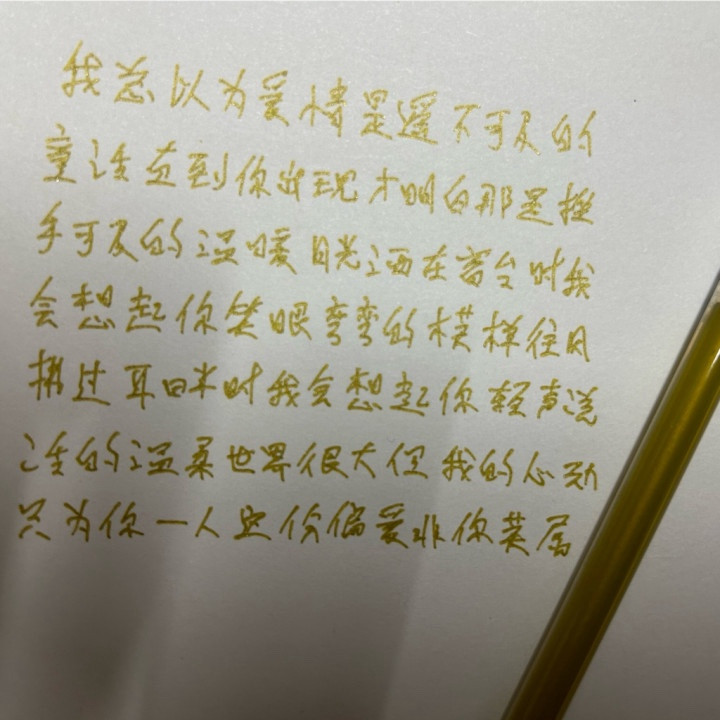 我总以为爱情是遥不可及的
童话直到你出现才明白那是触
手可及的温暖晚光洒在窗台时我
会想起你笑眼弯弯的模样往风
拂过耳畔时我会想起你轻声说
话的温柔世界很大但我的心动
只为你一人这份偏爱非你莫属